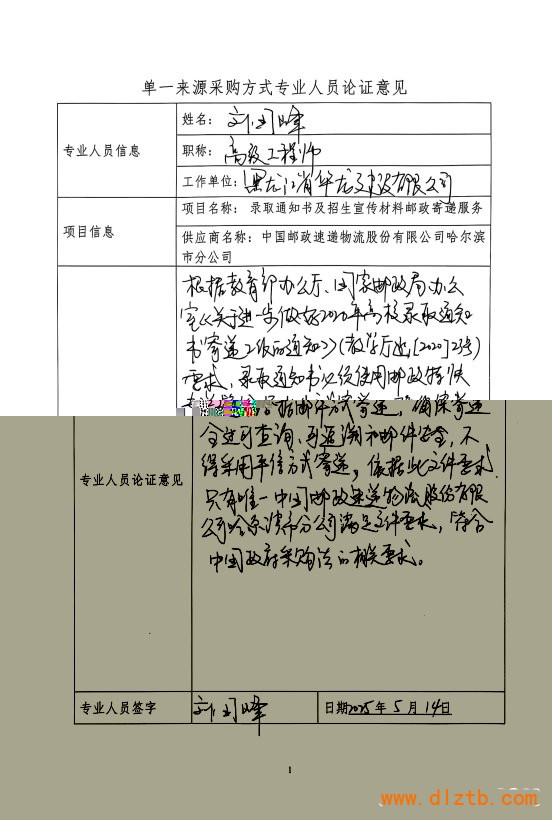 单一来源采购方式专业人员论证意见
专业人员信息
姓名：刘国峰
职称：高级工程师
工作单位：黑龙江省华龙建设有限公司
项目信息
项目名称：录取通知书及招生宣传材料邮政寄递服务
供应商名称：中国邮政速递物流股份有限公司哈尔滨
市分公司
专业人员论证意见
根据教育部办公厅、国家邮政局办公
室《关于进一步做好2020年高校录取通知
书寄递工作的通知》(教学厅函[2020]23号)
要求，录取通知书必须使用邮政特快
方式寄递，确保寄递
全过可查询、可追溯和邮件安全，不
得采用平信方式寄递，依据此文件要求
只有唯一中国邮政速递物流股份有限
公司哈尔滨市分公司满足文件要求，符合
中国政府采购法的相关要求。
专业人员签字
刘国峰
日期2025年5月14日
1
www.dlztb.com